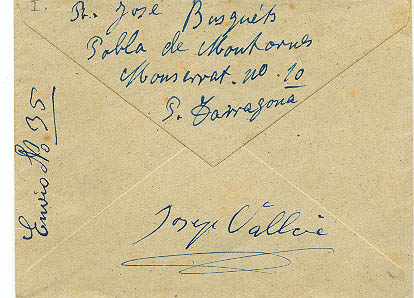 I.
R. José Busquéts
Pobla de Montornes
Monserrat. nº. 10
P. Tarragona
Envio Nº 35
Josep